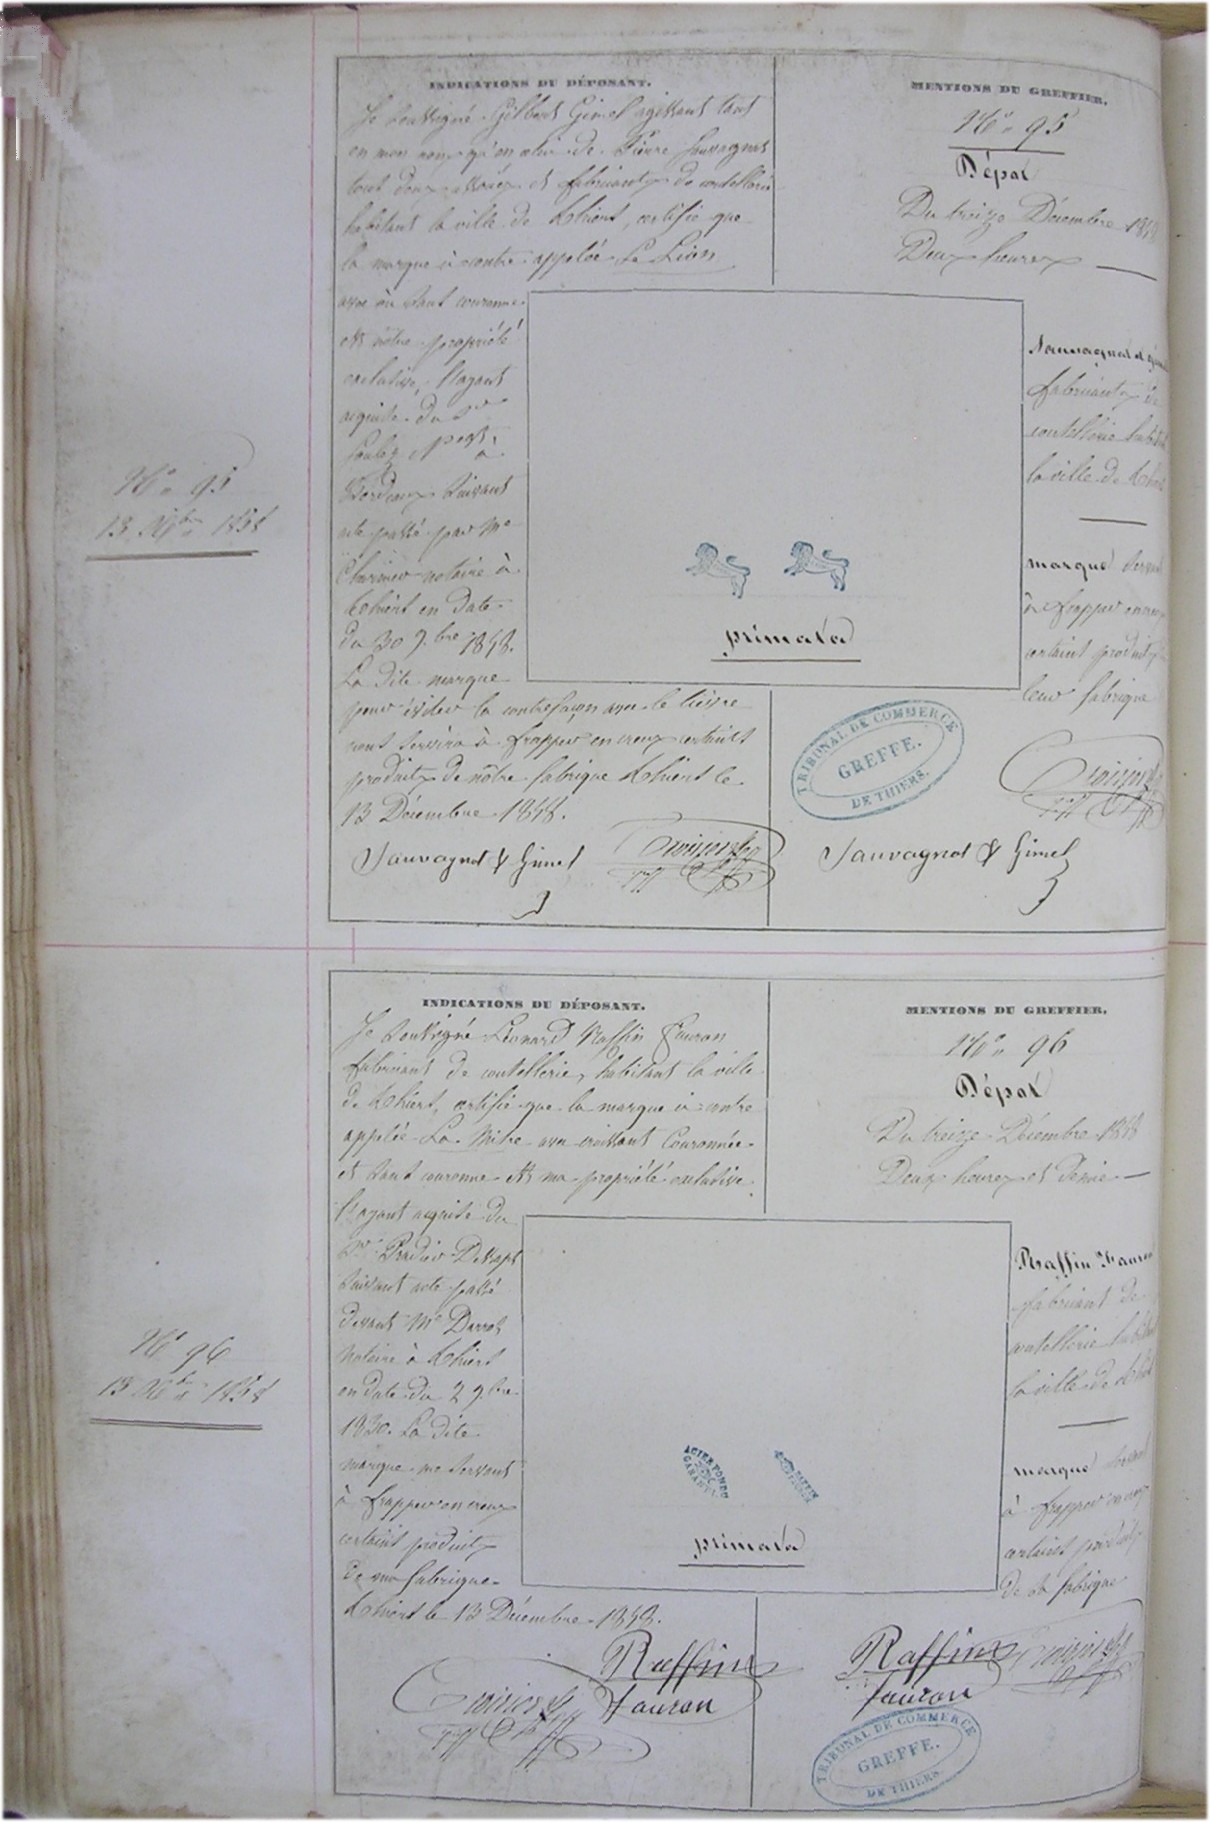 INDICATIONS DU DÉPOSANT.
Je soussigné Gilbert Gimel agissant tant
en mon nom qu'en celui de Pierre Sauvagnat
tout deux associés et fabricants de coutellerie
habitant la ville de Thiers, certifie que
la marque ci contre appelée Le Lion
avec ou sans couronne
est nôtre propriété
exclusive, l'ayant
acquise du Sr

Bordeaux suivant
acte passé par Me
notaire à
Thiers en date
du 30 9.bre 1858.
La dite marque
pour éviter la contrefaçon avec le lièvre
nous servira à frapper en creux certains
produits de nôtre fabrique Thiers le
13 Décembre 1858.
Sauvagnat & Gimel
MENTIONS DU GREFFIER.
No 95
Dépôt
Du treize Décembre 1858
Deux heures
Sauvagnat et
fabricants de
coutellerie
la ville de Thiers
marque servant
à frapper en creux
certains produits
leur fabrique
primata
TRIBUNAL DE COMMERCE
GREFFE.
DE THIERS.
Sauvagnat & Gimel
No 95
13 Xbre 1858
INDICATIONS DU DÉPOSANT.
Je soussigné Léonard Raffin Fauron
fabricant de coutellerie, habitant la ville
de Thiers, certifie que la marque ci contre
appelée La Mitre avec croissant Couronnée
et sans couronne est ma propriété exclusive
l'ayant acquise du
Sr Pradier
suivant acte passé
devant Me Darrot
Notaire à Thiers
en date du 2 9.bre
1830. La dite
marque me servant
à frapper en creux
certains produits
de ma fabrique.
Thiers le 13 Décembre 1858.
Raffin
Fauron
MENTIONS DU GREFFIER.
No 96
Dépôt
Du treize Décembre 1858
Deux heures et demie
Raffin Fauron
fabricant de
coutellerie
la ville de Thiers
marque servant
à frapper en creux
certains produits
de sa fabrique
ACIER FONDU
GARANTI
primata
Raffin
Fauron
TRIBUNAL DE COMMERCE
GREFFE.
DE THIERS.
No 96
13 Xbre 1858